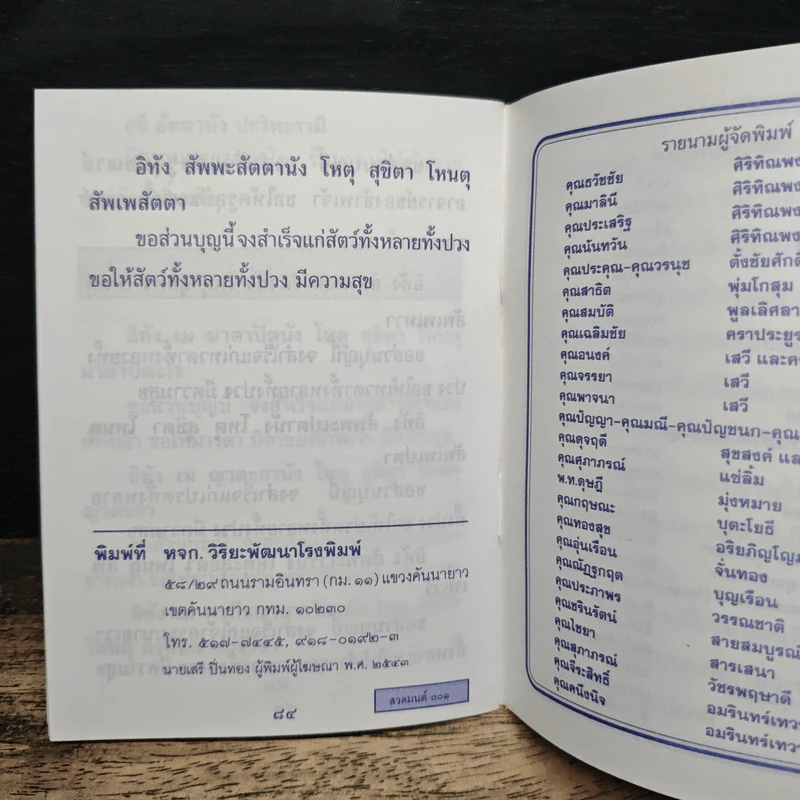 อิทัง สัพพะสัตตานัง โหตุ สุขิตา โหนตุ
สัพเพสัตตา
ขอส่วนบุญนี้ จงสำเร็จแก่สัตว์ทั้งหลายทั้งปวง
ขอให้สัตว์ทั้งหลายทั้งปวง มีความสุข
พิมพ์ที่ หจก. วิริยะพัฒนาโรงพิมพ์
๕๘/๒๙ ถนนรามอินทรา (กม. ๑๑) แขวงคันนายาว
เขตคันนายาว กทม. ๑๐๒๓๐
โทร. ๕๑๗-๗๔๔๕, ๙๑๘-๐๑๙๒-๓
นายเสรี ปิ่นทอง ผู้พิมพ์ผู้โฆษณา พ.ศ. ๒๕๔๓
สวดมนต์ ๐๐๑
๘๔
รายนามผู้จัดพิมพ์
คุณธวัชชัย ศิริทิณพง
คุณมาลินี ศิริทิณพง
คุณประเสริฐ ศิริทิณพง
คุณนันทวัน ศิริทิณพง
คุณประคุณ-คุณวรนุช ตั้งชัยศักดิ์
คุณสาธิต พุ่มโกสุม
คุณสมบัติ พูลเลิศลา
คุณเฉลิมชัย คราประยูร
คุณอนงค์ เสวี และค
คุณจรรยา เสวี
คุณพาจนา เสวี
คุณปัญญา-คุณมณี-คุณปัญชนก-คุณ
คุณดุจฤดี สุขสงค์ แล
คุณศุภาภรณ์ แซ่ลิ้ม
พ.ท.ดุษฎี มุ่งหมาย
คุณกฤษณะ บุตะโยธี
คุณทองสุข อริยภิญโญภ
คุณอุ่นเรือน จั่นทอง
คุณณัฏฐกฤต บุญเรือน
คุณประภาพร วรรณชาติ
คุณชรินรัตน์ สายสมบูรณ์
คุณไชยา สารเสนา
คุณสุภาภรณ์ วัชรพฤษาดี
คุณจีระสิทธิ์ อมรินทร์เทว
คุณคนึงนิจ อมรินทร์เทว